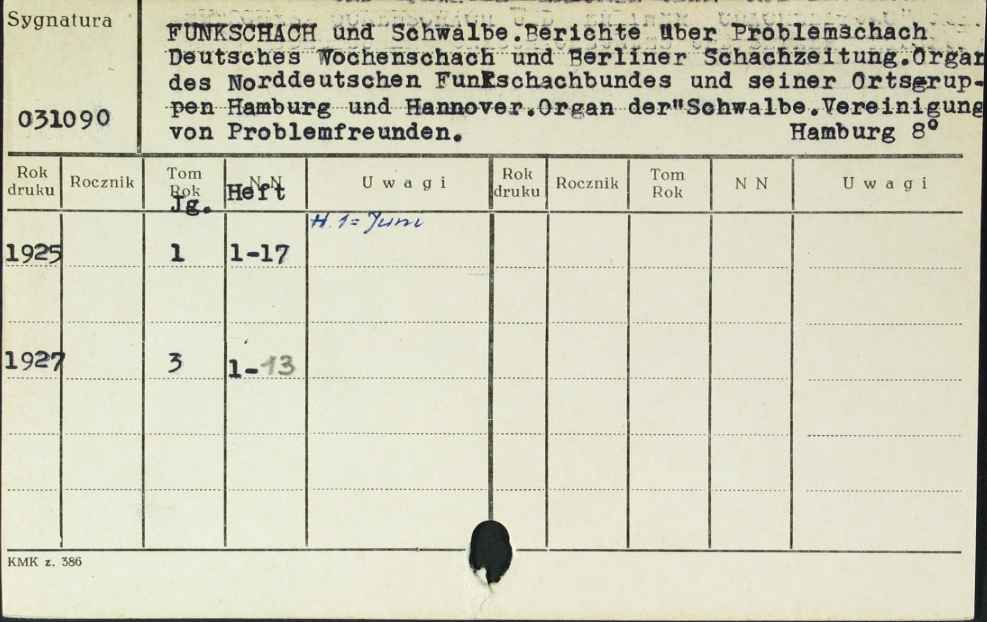 Sygnatura
FUNKSCHACH und Schwalbe.Berichte über Problemschach
Deutsches Wochenschach und Berliner Schachzeitung.Organ
des Norddeutschen Funkschachbundes und seiner Ortsgrup-
031090
pen Hamburg und Hannover.Organ der"Schwalbe.Vereinigung
von Problemfreunden. Hamburg 8°
Rok druku Rocznik Tom Rok N N Uwagi Rok druku Rocznik Tom Rok N N Uwagi
Jg. Heft
H. 1= Juni
1925 1 1-17
1927 3 1-13
KMK z. 386